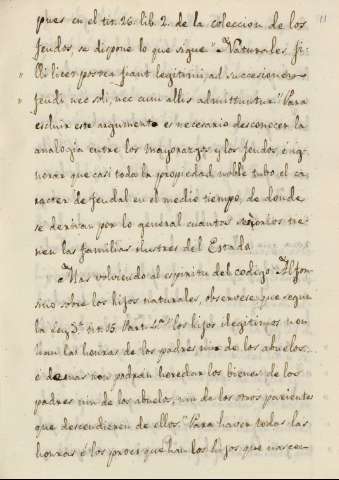 11
pues en el tit. 26. lib. 2. de la coleccion de los
feudos, se dispone lo que sigue "Naturales fi-
" lii licet postea fiant legitimi, ad successionem
" feudi nec soli, nec cum aliis admittuntur." Para
escluir este argumento es necesario desconocer la
analogía entre los mayorazgos y los feudos, é ig-
norar que casi toda la propiedad noble tubo el ca-
racter de feudal en el medio tiempo, de donde
se derivan por lo general cuantos señoríos tie-
nen las familias ilustres del Estado.
Mas volviendo al espiritu del codigo Alfon-
sino sobre los hijos naturales, observese que segun
la Ley 3ª tit. 15 Part. 4ª "los hijos ilegitimos non
han las honras de los padres nin de los abuelos...
é demas non podran heredar los bienes de los
padres nin de los abuelos, nin de los otros parientes
que descendieren de ellos." Para haver todas las
honras é los proes que han los hijos que nascen